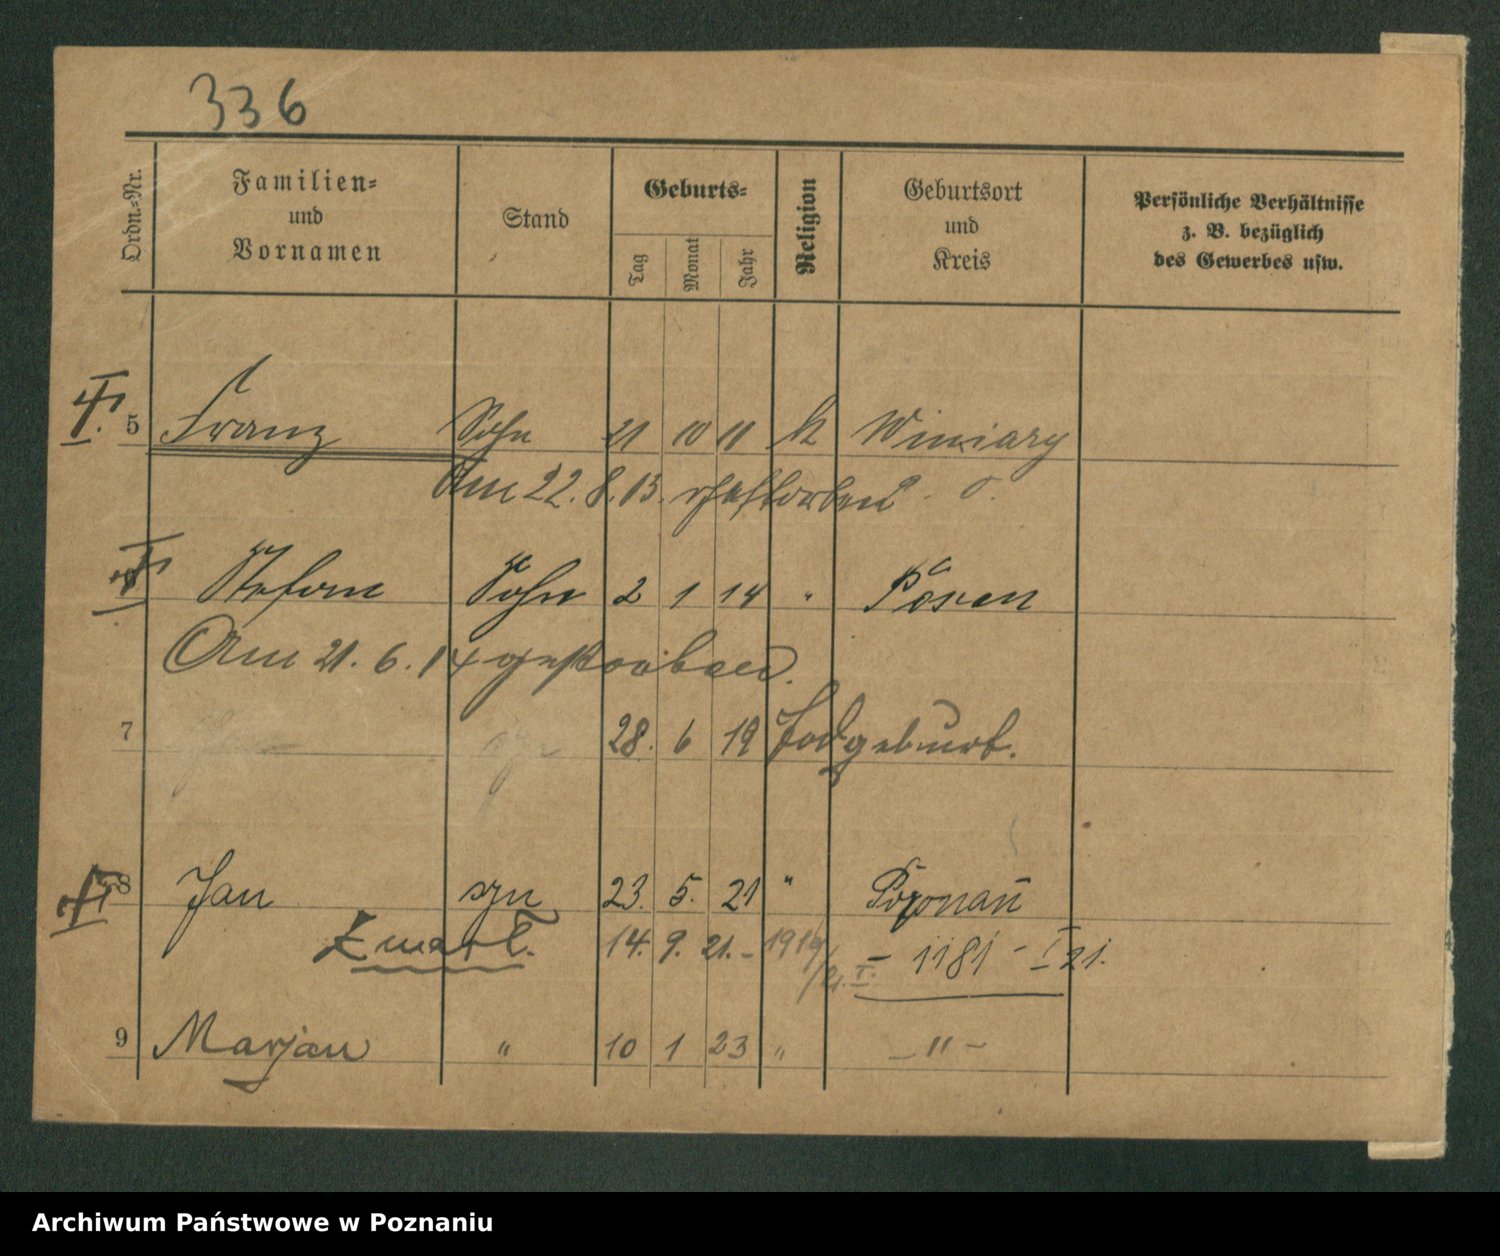 336
Ordn.-Nr.
Familien-
und
Vornamen
Stand
Geburts-
Tag
Monat
Jahr
Religion
Geburtsort
und
Kreis
Persönliche Verhältnisse
z. B. bezüglich
des Gewerbes usw.
5 Franz Sohn 21 10 11 k Winiary
Am 22. 8. 13. gestorben
Stefan Sohn 2 1 14 " Posen
Am 21. 6. 14 gestorben.
7 28. 6 19 Todgeburt.
8 Jan syn 23. 5. 21 " Poznań
Zmarł. 14. 9. 21. - 1919/21. I. - 1181 - I 21.
9 Marjan " 10 1 23 " - " -
Archiwum Państwowe w Poznaniu